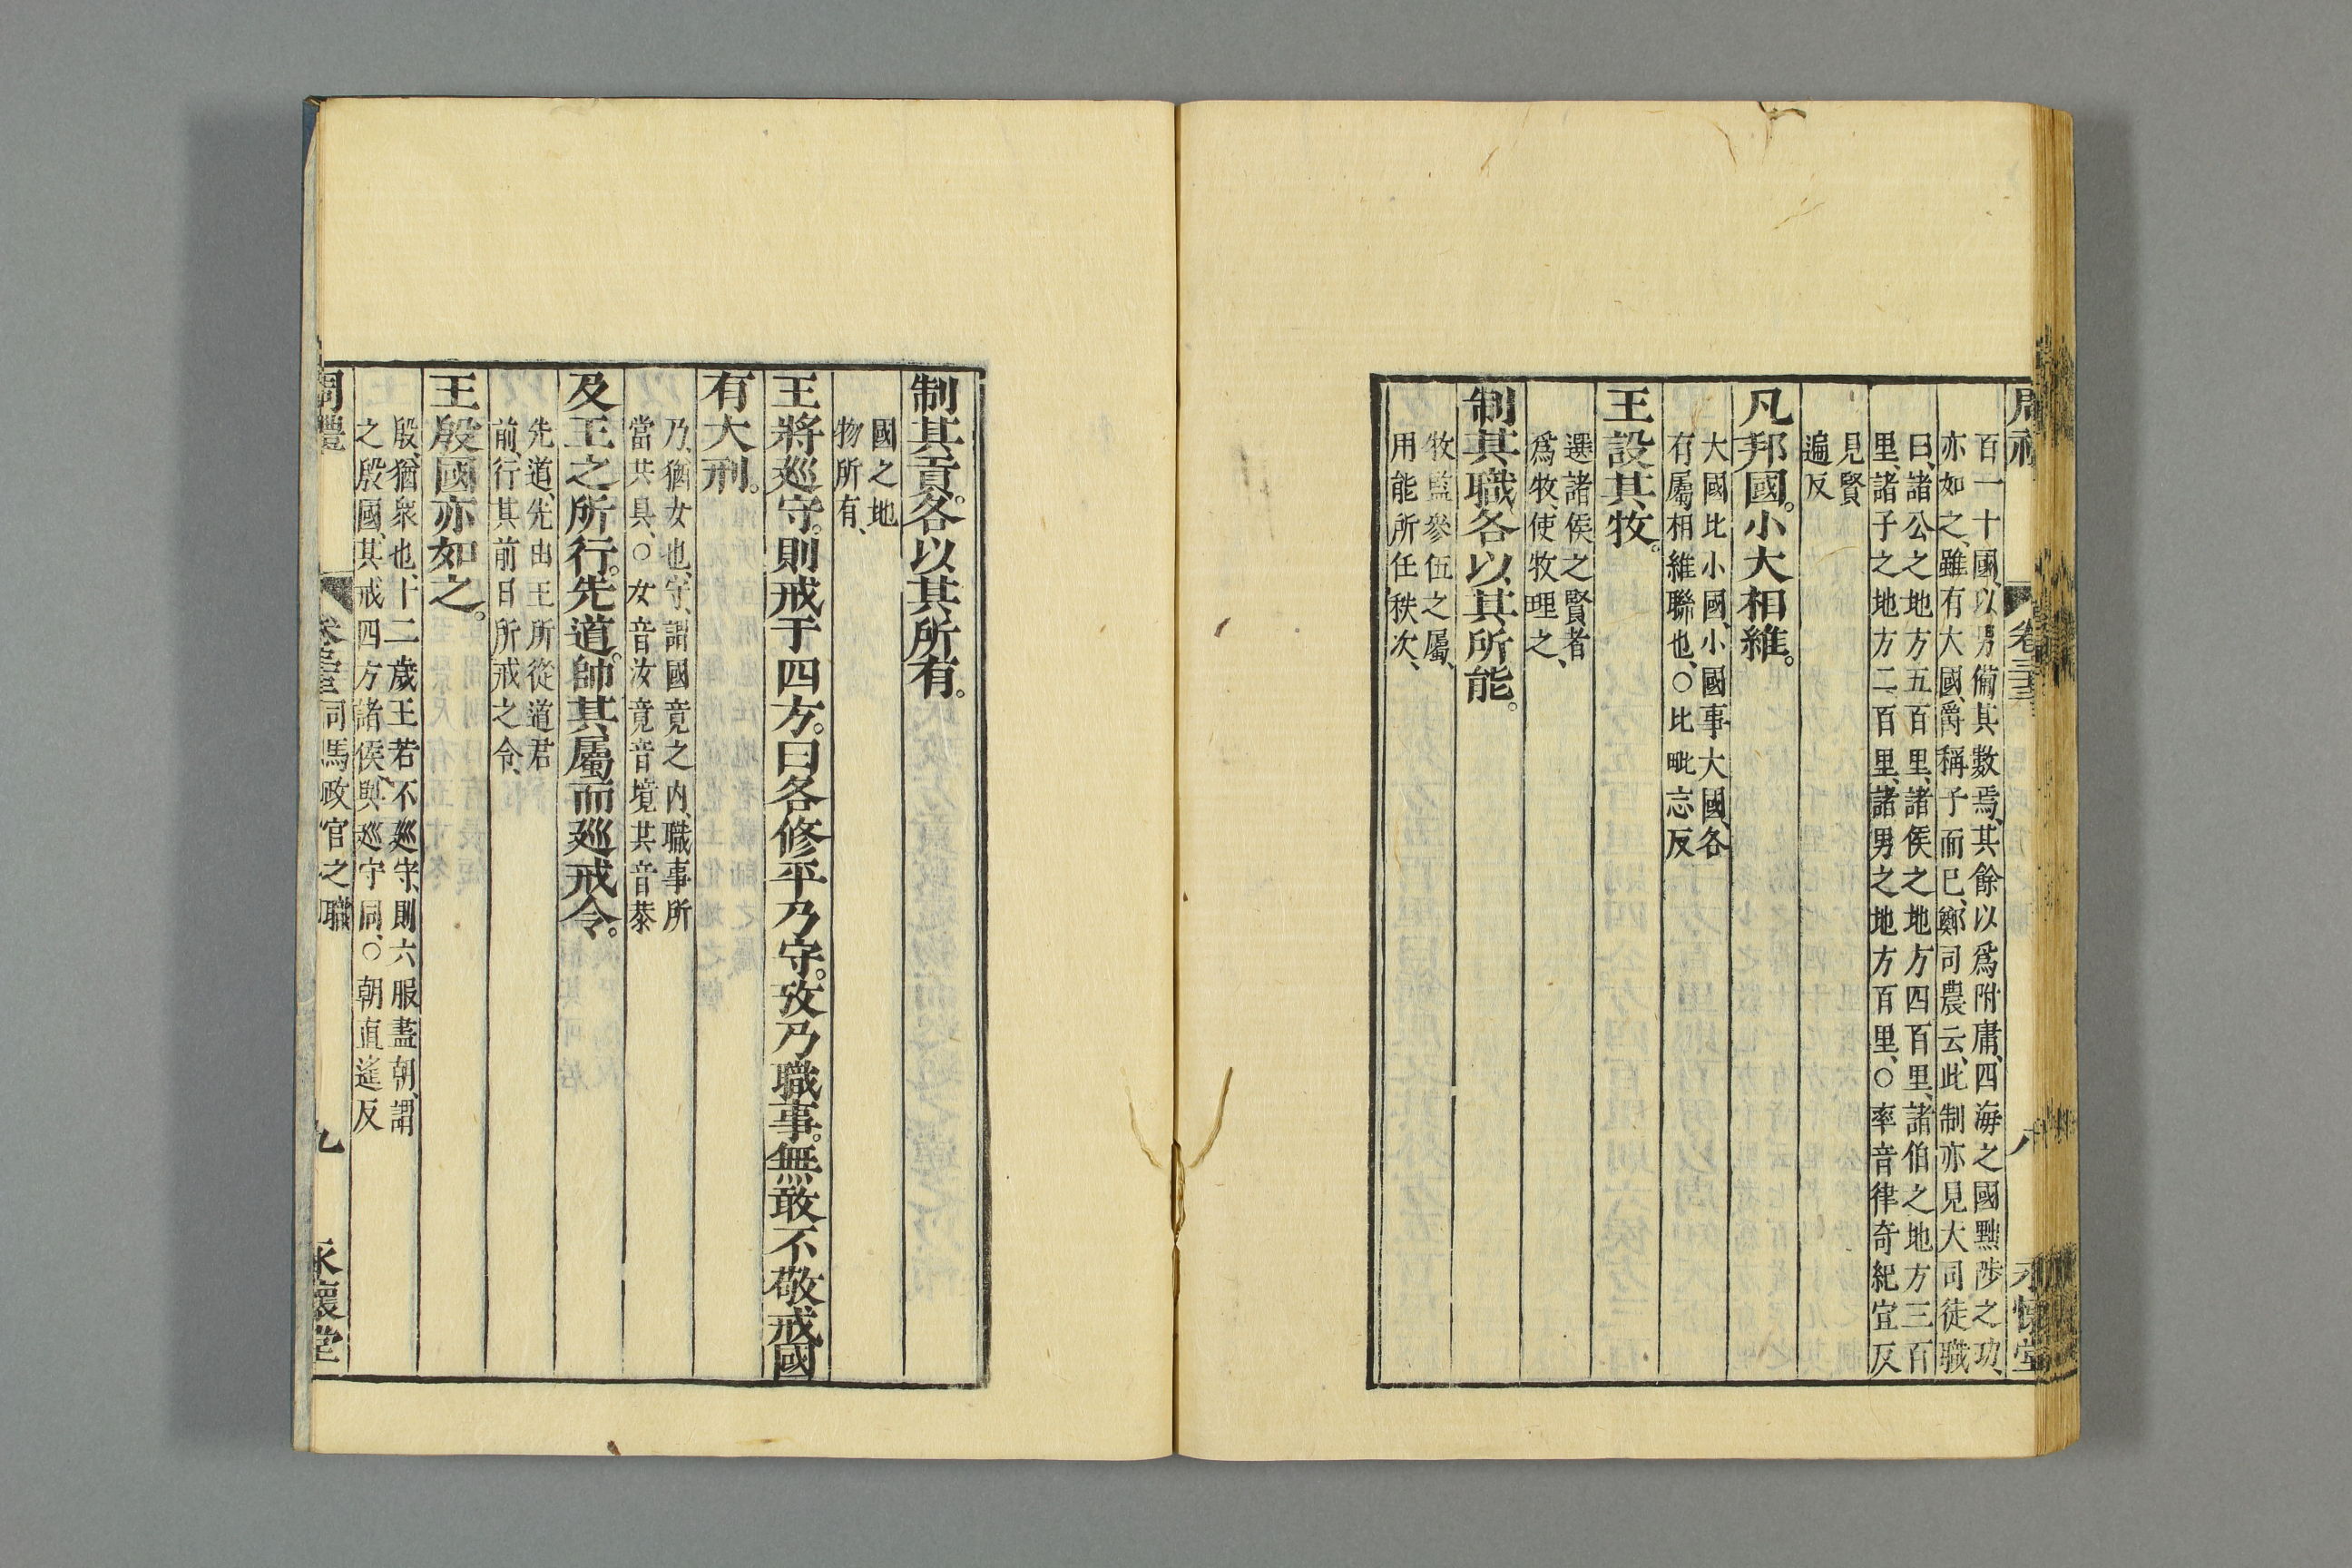 百一十國、以男備其數焉、其餘以爲附庸、四海之國黜陟之功、
亦如之、雖有大國、爵稱子而已、鄭司農云、此制亦見大司徒職
曰、諸公之地方五百里、諸侯之地方四百里、諸伯之地方三百
里、諸子之地方二百里、諸男之地方百里、○率音律奇紀宜反
見賢
遍反
凡邦國。小大相維。
大國比小國、小國事大國、各
有屬相維聯也、○比毗志反
王設其牧。
選諸侯之賢者
爲牧、使牧理之、
制其職各以其所能。
牧監參伍之屬、
用能所任秩次、
制其貢。各以其所有。
國之地
物所有、
王將廵守。則戒于四方。曰各修平乃守。攷乃職事。無敢不敬戒國
有大刑。
乃、猶女也、守、謂國竟之內、職事所
當共具、○女音汝竟音境共音恭
及王之所行。先道。帥其屬而廵戒令。
先道、先由王所從道君
前、行其前日所戒之令、
王殷國亦如之。
殷、猶衆也、十二歲王若不廵守、則六服盡朝、謂
之殷國、其戒四方諸侯、與廵守同、○朝直遙反
周禮 卷三十三 司馬政官之職 九 永懷堂